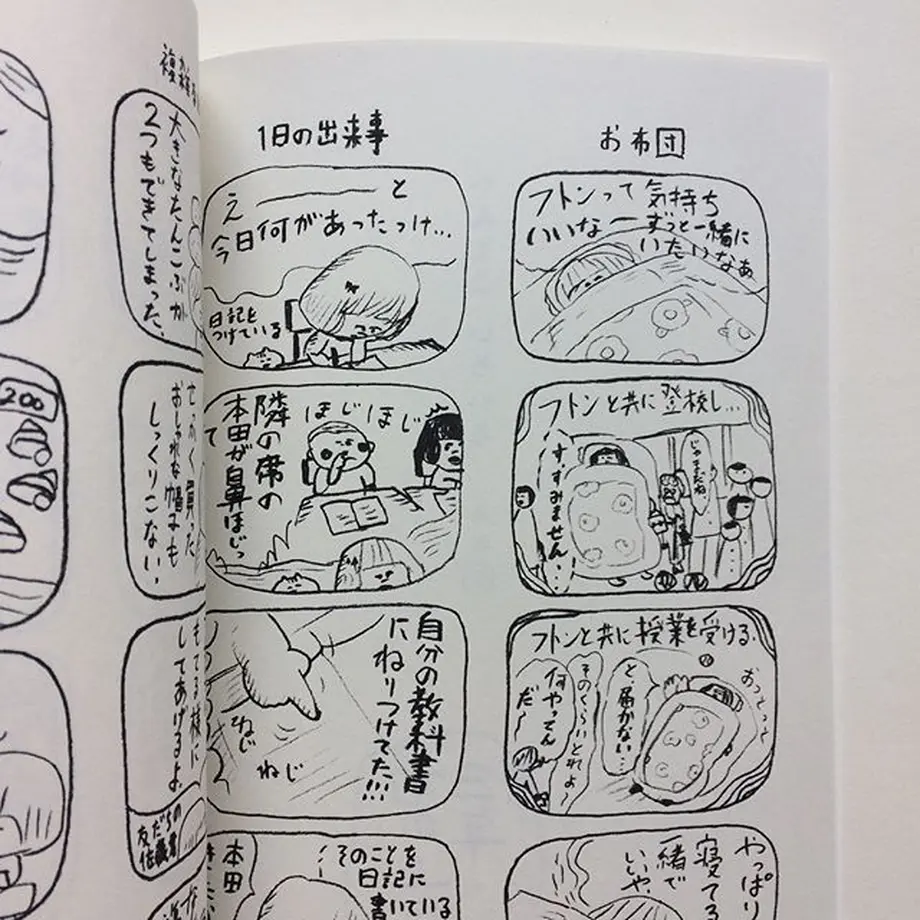 お布団
フトンって気持ち
いいなー
ずっと一緒に
いたいなぁ
フトンと共に登校し…
じゃまだね
す、すみません…
フトンと共に授業を受ける。
おっとっと
と、届かない…
そのくらいとれよ〜
何やってん
だ〜
やっぱり
寝てる
一緒で
いいや
1日の出来事
え———と
今日何があったっけ…
日記を
つけている
隣の席の
本田が鼻ほじっ
て
ほじほじ
自分の教科書
にねりつけてた!!!
ねじ
ねじ
そのことを
日記に
書いている
本田
大きなたんこぶが
2つもできてしまった。
せっかく買った
おしゃれな帽子も
しっくりこない。
もてる様に
してあげるよ
友だちの
200